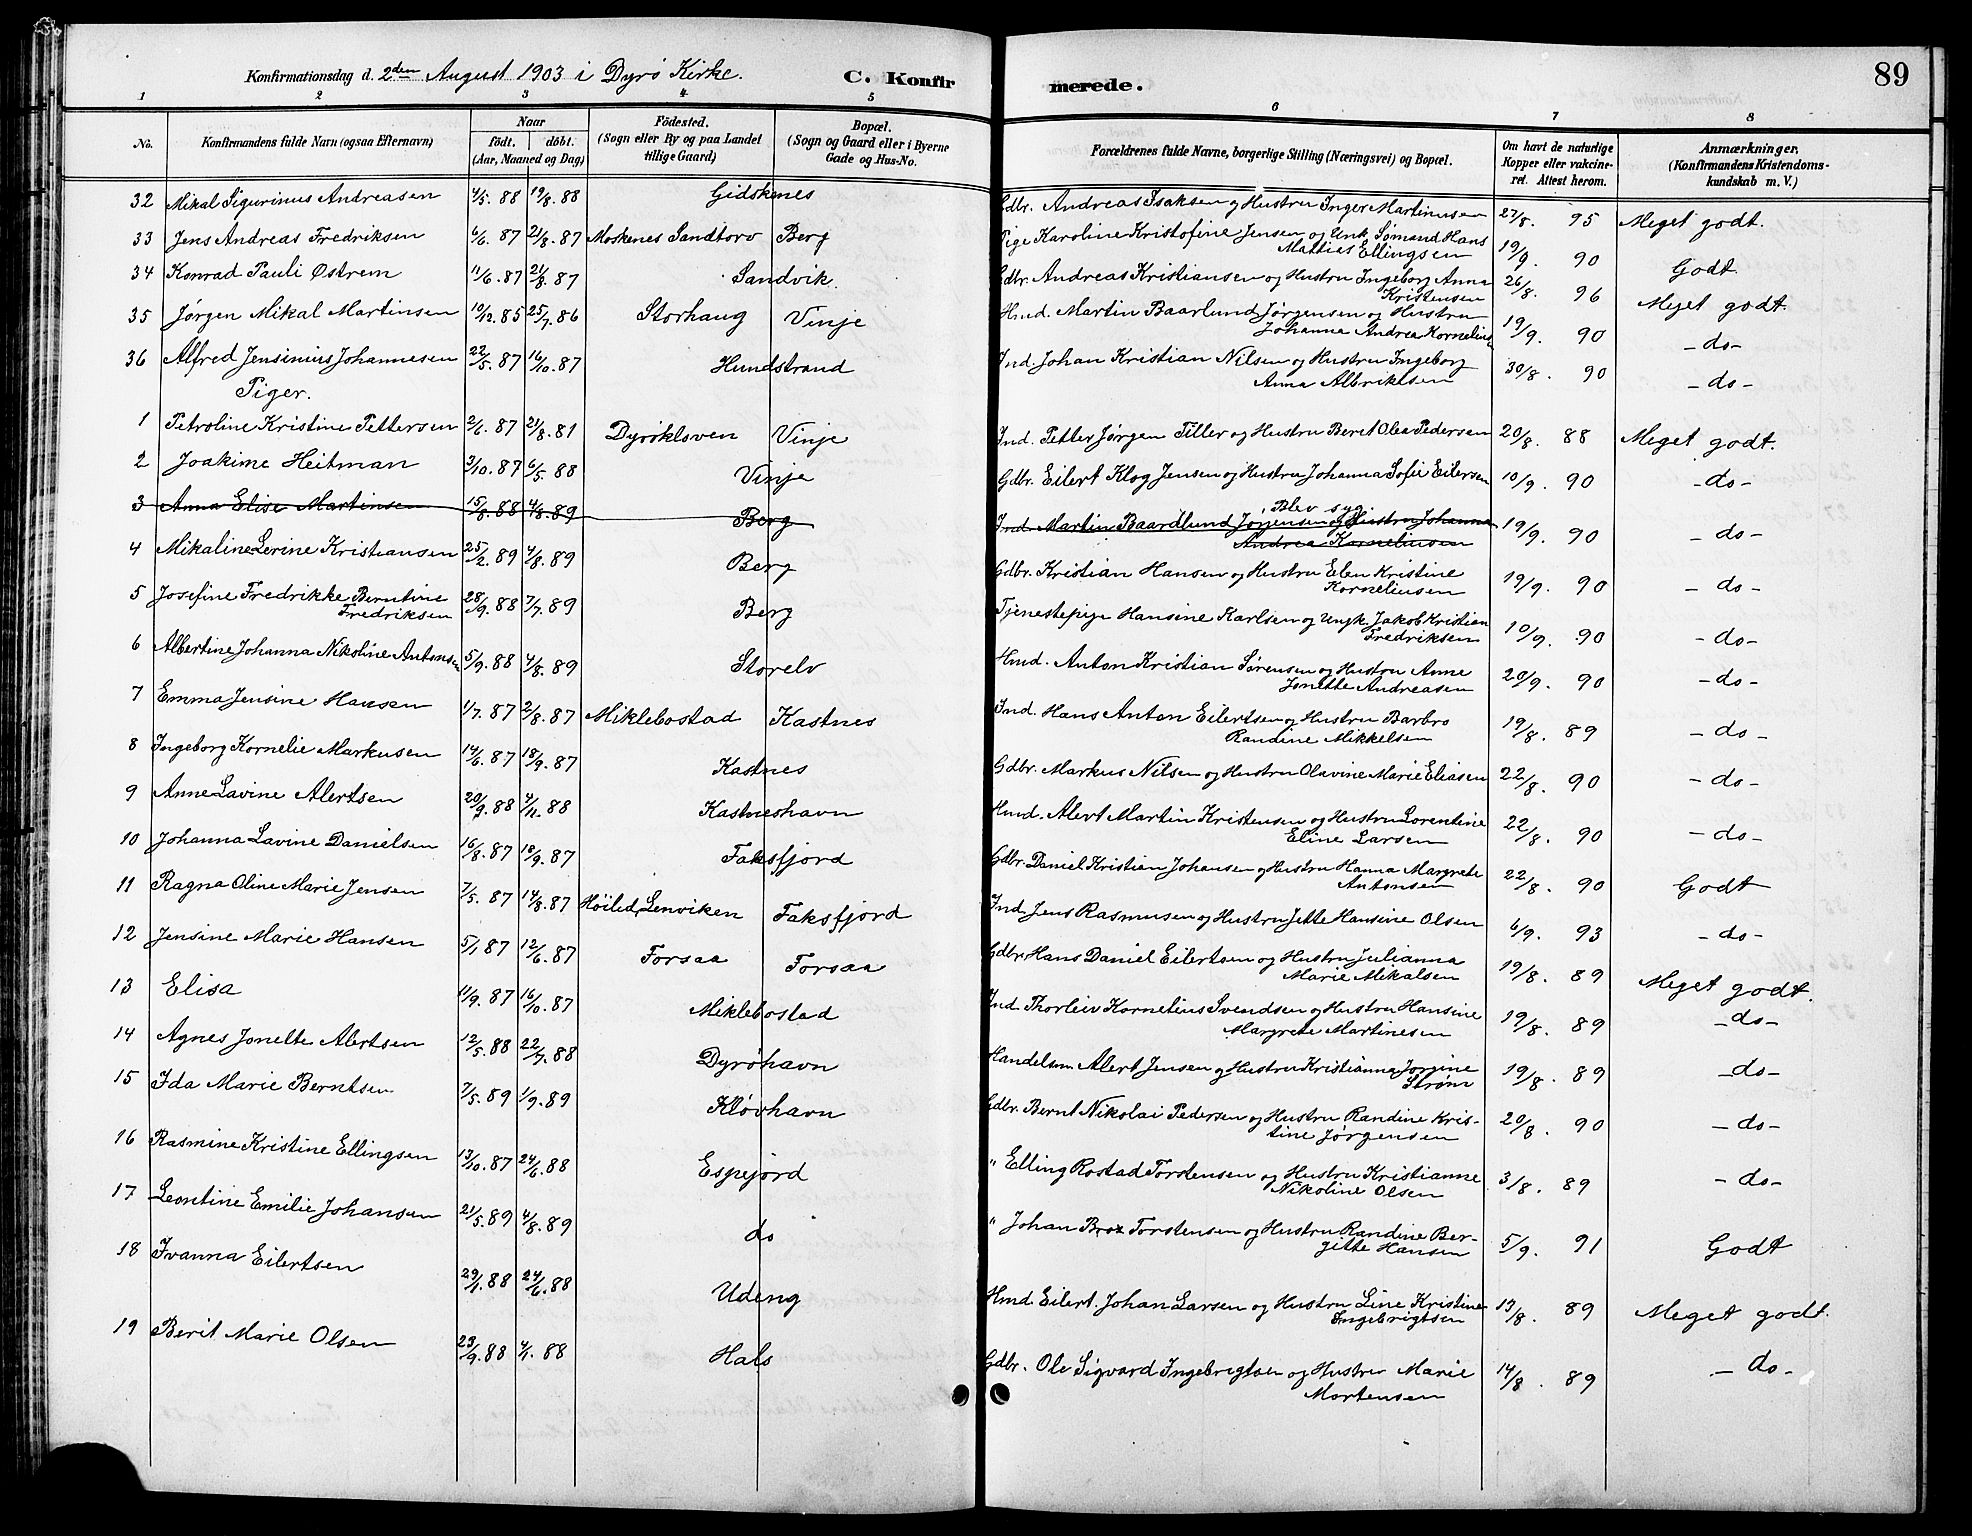 Konfirmationsdag d. 2den August 1903 i Dyrö Kirke. C. Konfirmerede. 89
1 2 3 4 5 6 7 8
No. Konfirmandens fulde Navn (ogsaa Efternavn) Naar födt. döbt. (Aar, Maaned og Dag) Födested. (Sogn eller By og paa Landet tillige Gaard) Bopæl. (Sogn og Gaard eller i Byerne Gade og Hus-No. Forældrenes fulde Navne, borgerlige Stilling (Næringsvei) og Bopæl. Om havt de naturlige Kopper eller vakcineret. Attest herom. Anmærkninger, (Konfirmandens Kristendomskundskab m. V.)
32 Mikal Sigurinus Andreasen 4/5. 88 19/8. 88 Gidskenes Gdbr. Andreas Isaksen og Hustru Inger Martinusen 27/8. 95 Meget godt.
33 Jens Andreas Fredriksen 6/6. 87 21/8. 87 Moskenes Sandtorv Berg Pige Karoline Kristofine Jensen og Unk. Sömand Hans
Mathias Ellingsen 19/9. 90 Godt
34 Konrad Pauli Østrem 11/6. 87 21/8. 87 Sandvik. Gdbr. Andreas Kristiansen og Hustru Ingeborg Anna
Kristensen 26/8. 96 Meget godt.
35 Jørgen Mikal Martinsen 10/12. 85 25/7. 86 Storhaug Vinje Hmd. Martin Baarlund Jørgensen og Hustru
Johanna Andrea Kornelius 19/9. 90 - do -
36 Alfred Jensinius Johannesen 22/5. 87 16/10. 87 Hundstrand Ind. Johan Kristian Nilsen og Hustru Ingeborg
Anna Albriktsen 30/8. 90 - do -
Piger.
1 Petroline Kristine Pettersen 2/6. 87 21/8. 81 Dyrökloven Vinje Ind. Petter Jørgen Tiller og Hustru Beret Olea Pedersen 20/8. 88 Meget godt.
2 Joakime Heitman 3/10. 87 6/5. 88 Vinje Gdbr. Eilert Klog Jensen og Hustru Johanna Sofie Eilersen 10/9. 90 - do -
Blev syg.
3 Anna Elise Martinsen 15/8. 88 4/8. 89 Berg Ind. Martin Baardlund Jørgensen og Hustru Johanna
Andrea Korneliusen 19/9. 90 - do -
4 Mikaline Lerine Kristiansen 25/2. 89 4/8. 89 Berg Gdbr. Kristian Hansen og Hustru Elen Kristine
Korneliusen 19/9. 90 - do -
5 Josefine Fredrikke Berntine
Fredriksen 28/9. 88 7/7. 89 Berg Tjenestepige Hansine Karlsen og Ungk. Jakob Kristian
Fredriksen 10/9. 90 - do -
6 Albertine Johanna Nikoline Antonsen 5/9. 88 4/8. 89 Storelv Hmd. Anton Kristian Sørensen og Hustru Anne
Jonette Andreasen 20/9. 90 - do -
7 Emma Jensine Hansen 1/7. 87 2/8. 87 Miklebostad Kastnes Ind. Hans Anton Eilertsen og Hustru Barbro
Randine Mikkelsen 19/8. 89 - do -
8 Ingeborg Kornelie Markusen 14/6. 87 18/9. 87 Kastnes Gdbr. Markus Nilsen og Hustru Olavine Marie Eliasen 22/8. 90 - do -
9 Anne Lavine Alertsen 20/9. 88 4/11. 88 Kastneshavn Hmd. Alert Martin Kristensen og Hustru Lorentine
Eline Larsen 22/8. 90 - do -
10 Johanna Lavine Danielsen 16/8. 87 18/9. 87 Faksfjord Gdbr. Daniel Kristian Johansen og Hustru Hanna Margrete
Antonsen 22/8. 90 Godt
11 Ragna Oline Marie Jensen 7/5. 87 14/8. 87 Höilid, Lenviken Faksfjord Ind. Jens Rasmusen og Hustru Jette Hansine Olsen 6/9. 93 - do -
12 Jensine Marie Hansen 5/1 87 12/6. 87 Forsaa Forsaa Gdbr. Hans Daniel Eilertsen og Hustru Julianna
Marie Mikalsen 19/8. 89 Meget godt.
13 Elisa 11/9. 87 16/10. 87 Miklebostad Ind. Thorleiv Kornelius Svendsen og Hustru Hansine
Margrete Martinesen 19/8. 89 - do -
14 Agnes Jonette Alertsen 12/5. 88 22/7. 88 Dyröhavn Handelsm. Alert Jensen og Hustru Kristianna Jorgine
Strøm 19/8. 89 - do -
15 Ida Marie Berntsen 7/5. 89 1/9. 89 Kløvhavn Gdbr. Bernt Nikolai Pedersen og Hustru Randine Kris-
tine Jørgensen 20/8. 90 - do -
16 Rasmine Kristine Ellingsen 13/10. 87 24/6. 88 Espejord " Elling Rostad Torstensen og Hustru Kristianne
Nikoline Olsen 3/8. 89 - do -
17 Leontine Emilie Johansen 21/5. 89 4/8. 89 do " Johan Brox Torstensen og Hustru Randine Ber-
gitte Hansen 5/9. 91 Godt
18 Ivanna Eilertsen 29/1. 88 24/6. 88 Udeng Hmd. Eilert Johan Larsen og Hustru Line Kristine
Ingebrigtsen 13/8. 89 Meget godt.
19 Berit Marie Olsen 23/9. 88 4/1. 88 Hals Gdbr. Ole Sigvard Ingebregtsen og Hustru Marie
Mortensen 14/8. 89 - do -